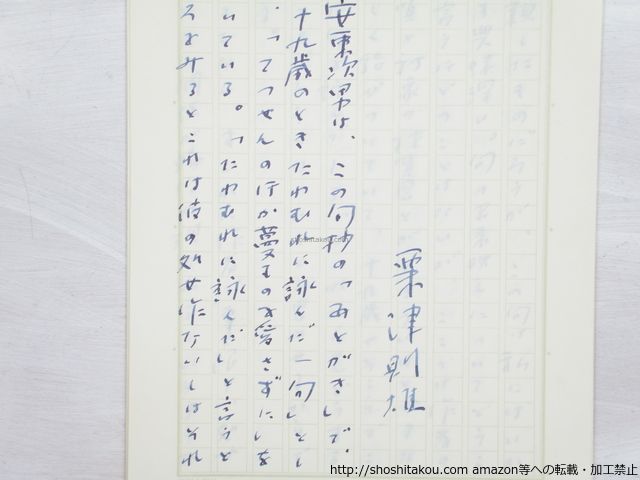 粟津則雄
安東次男は、この句抄の「あとがき」で、
十九歳のときたわむれに詠んだ一句」とし
、「てつせんのほか蔓ものを愛さずに」を
いている。「たわむれに詠んだ」と言うと
ろをみるとこれは彼の処女作ないしはそれ
shoshitakou.com
http://shoshitakou.com amazon等への転載・加工禁止